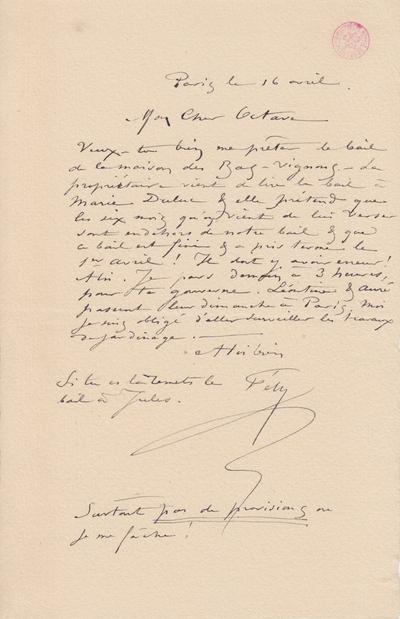 Paris le 16 avril.
Mon Cher Octave
Veux-tu bien me prêter le bail
de la maison des Bas-Vignons. La
propriétaire vient de lire le bail à
Marie Duluc & elle prétend que
les six mois qu'on vient de lui verser
sont en dehors de notre bail & que
ce bail est fini & a pris terme le
1er avril ! Il doit y avoir erreur !
Je pars demain à 3 heures,
pour ta gouverne. Léontine & Auré
passent leur dimanche à Paris, moi
je suis obligé d'aller surveiller les travaux
de jardinage.
Si tu es là remets le Fély
bail à Jules.
Surtout pas de provisions ou
je me fâche !